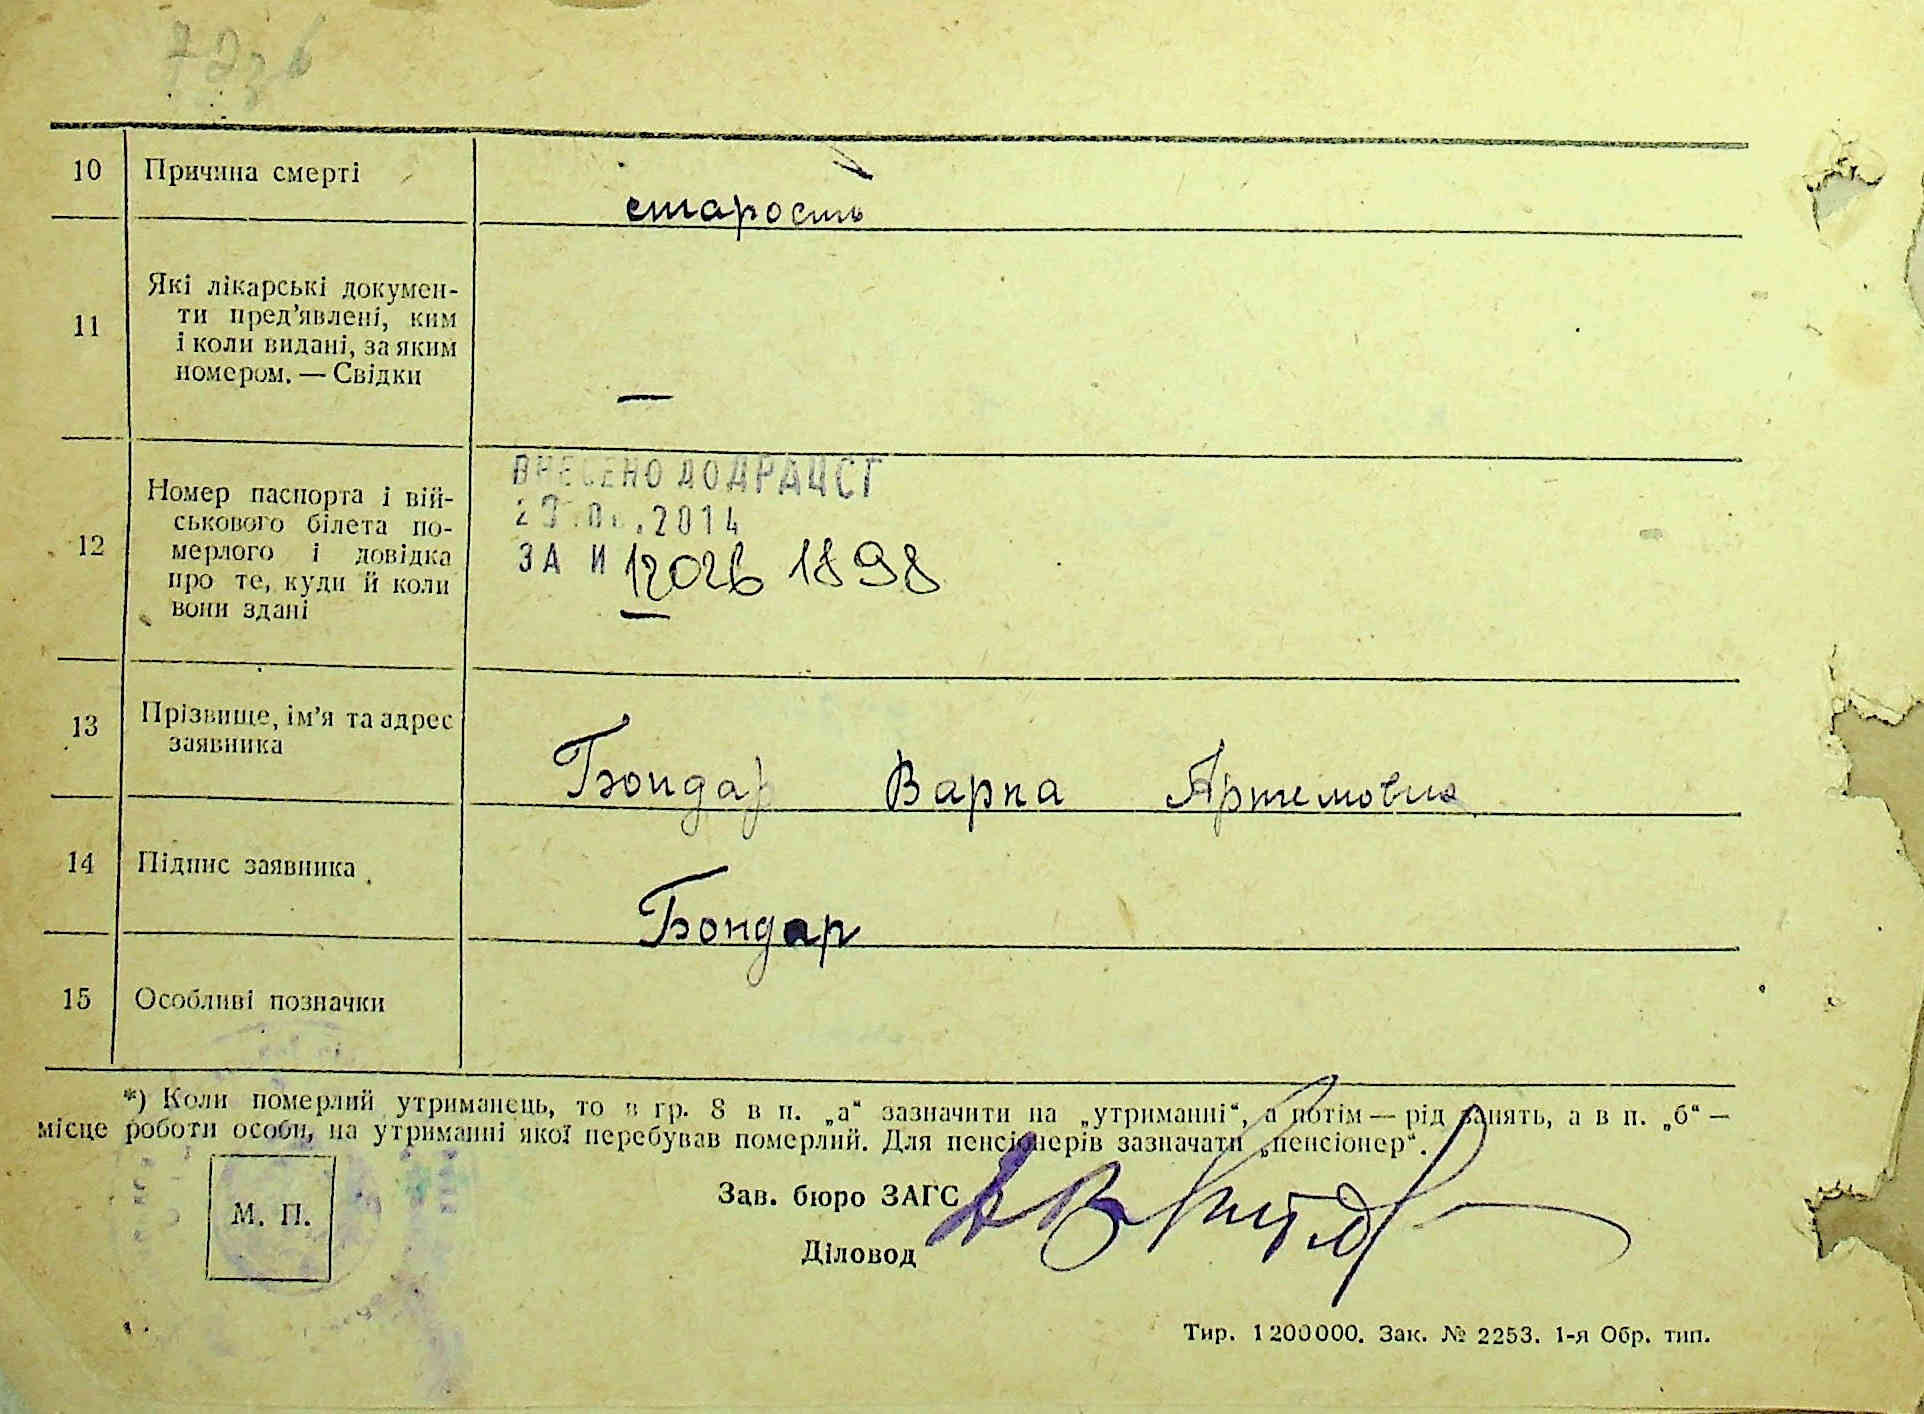 10 Причина смерті
старость
11 Які лікарські докумен-
ти пред’явлені, ким
і коли видані, за яким
номером. — Свідки
—
12 Номер паспорта і вій-
ськового білета по-
мерлого і довідка
про те, куди й коли
вони здані
ВНЕСЕНО ДО ДРАЦСГ
.2014
ЗА И 12026 1898
—
13 Прізвище, ім’я та адрес
заявника
Бондар Варка Артемовна
14 Підпис заявника
Бондар
15 Особливі позначки
*) Коли померлий утриманець, то в гр. 8 в п. „а“ зазначити на „утриманні“, а потім — рід занять, а в п. „б“ —
місце роботи особи, на утриманні якої перебував померлий. Для пенсіонерів зазначати „пенсіонер“.
М. П.
Зав. бюро ЗАГС
Діловод
Тир. 1200000. Зак. № 2253. 1-я Обр. тип.